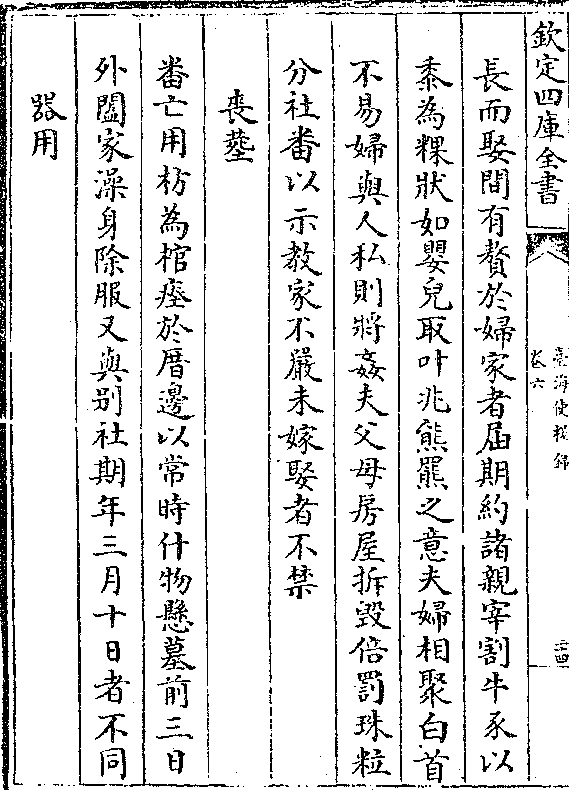 欽定四庫全書
臺海使槎錄
卷六
二四
長而娶間有贅於婦家者屆期約諸親宰割牛豕以
黍為粿狀如嬰兒取叶兆熊羆之意夫婦相聚白首
不易婦與人私則將姦夫父母房屋拆毀倍罰珠粒
分社畨以示教家不嚴未嫁娶者不禁
喪塟
畨亡用枋為棺瘞於厝邊以常時什物懸墓前三日
外闔家澡身除服又與别社期年三月十日者不同
器用